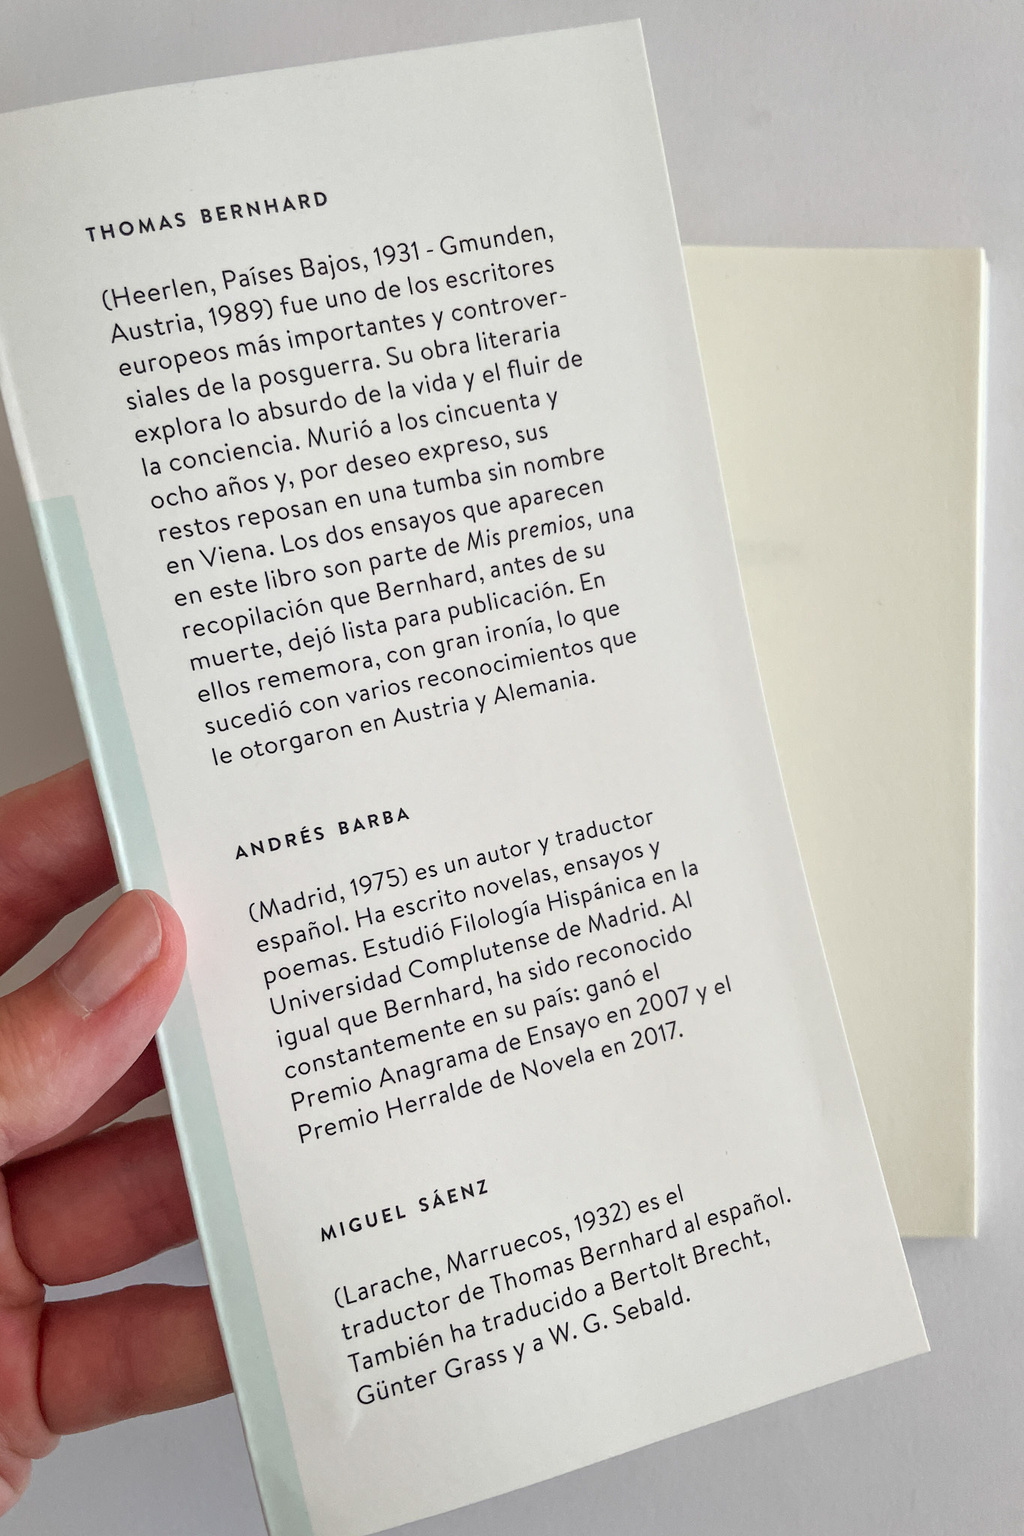 THOMAS BERNHARD
(Heerlen, Países Bajos, 1931 - Gmunden,
Austria, 1989) fue uno de los escritores
europeos más importantes y controver-
siales de la posguerra. Su obra literaria
explora lo absurdo de la vida y el fluir de
la conciencia. Murió a los cincuenta y
ocho años y, por deseo expreso, sus
restos reposan en una tumba sin nombre
en Viena. Los dos ensayos que aparecen
en este libro son parte de Mis premios, una
recopilación que Bernhard, antes de su
muerte, dejó lista para publicación. En
ellos rememora, con gran ironía, lo que
sucedió con varios reconocimientos que
le otorgaron en Austria y Alemania.
ANDRÉS BARBA
(Madrid, 1975) es un autor y traductor
español. Ha escrito novelas, ensayos y
poemas. Estudió Filología Hispánica en la
Universidad Complutense de Madrid. Al
igual que Bernhard, ha sido reconocido
constantemente en su país: ganó el
Premio Anagrama de Ensayo en 2007 y el
Premio Herralde de Novela en 2017.
MIGUEL SÁENZ
(Larache, Marruecos, 1932) es el
traductor de Thomas Bernhard al español.
También ha traducido a Bertolt Brecht,
Günter Grass y a W. G. Sebald.